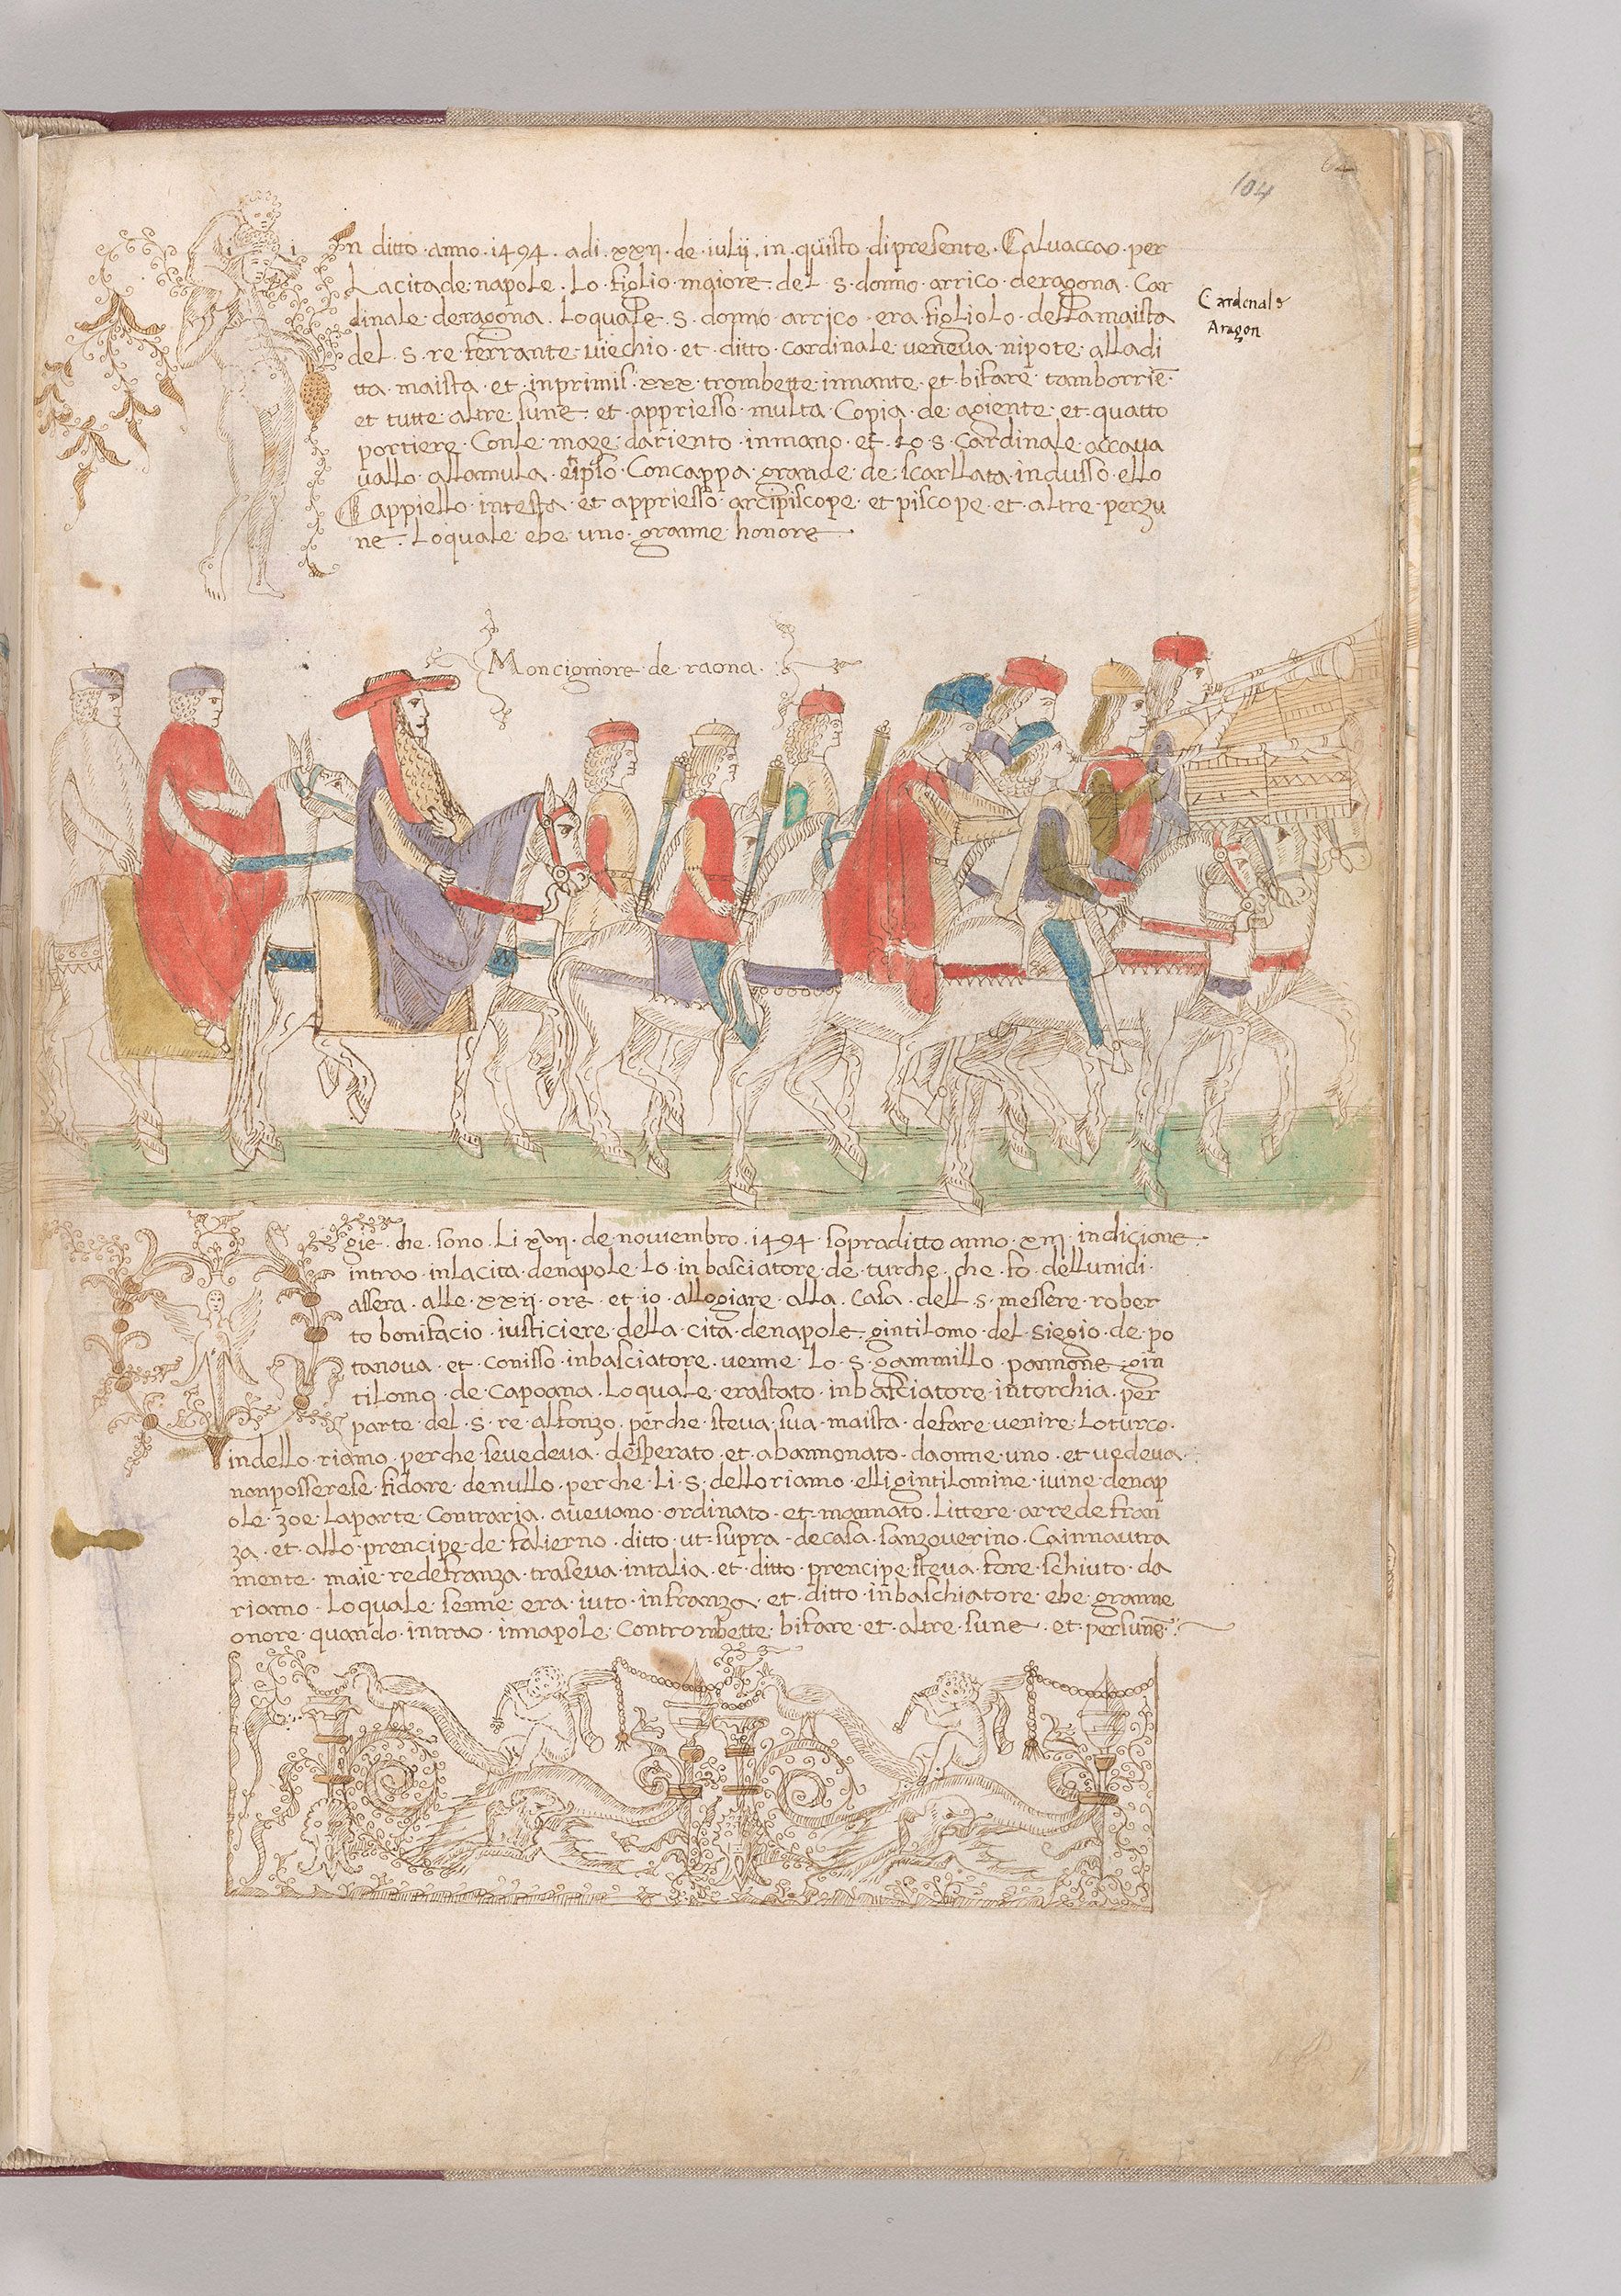 104
64
In ditto · anno · 1494 · adi · xxij · de · iulij · in · quisto · dipresente · Caluaccao · per
Lacitade · napole · Lo · figlio · maiore · del · s · donno · arrico · deragona · Car
dinale · deragona · loquale · s · donno · arrico · era · figliolo · dellamaista
del · s · re · ferrante · viechio · et · ditto · cardinale · veneva · nipote · alladi
tta · maista · et · inprimis · xxx · trombette · innante · et · bifare · tamborrine ·
et tutte · altre · sune · et · appriesso · multa · Copia · de · agiente · et · quatto
portiere · Conle · maze · dariento · inmano · et · Lo · s · cardinale · accaua
uallo · allamula · et ipso · Concappa · grande · de · scarllata · indusso · ello
Cappiello · intesta · et appriesso · arcipiscope · et piscope · et · altre · perzu
ne · Loquale · ebe · uno · granne honore
Cardenale
Aragon
Moncigniore · de · raona ·
gie · che · sono · Li xvij · de · nouiembro · 1494 · sopraditto anno · xiij · indicione ·
intrao · inlacita · denapole · Lo · inbasciatore · de · turche · che · fo · dellunidi ·
assera · alle · xxij · ore · et · io · allogiare · alla · Casa · dell · s · messere · rober
to bonifacio · iusticiere · della · cita · denapole · gintilomo · del · siegio · de · po
tanova · et · conisso · inbasciatore · venne · Lo · s · gammillo · pannone · gin
tilomo · de · Capoana · Loquale · erastato · inbasciatore · intorchia · per
parte · del · s · re · alfonzo · perche · steva · sua · maista · defare · venire · Loturco ·
indello · riamo · perche · sevedeva · desperato · et · abannonato · daonne · uno · et · vedeva ·
nonposserese · fidare · denullo · perche · Li · s · delloriamo · elligintilomine · iuine · denap
ole · zoe · Laparte · Contraria · avevano · ordinato · et · mannato · Littere · arrede fran
za · et · allo · prencipe · de · salierno · ditto · ut · supra · decasa · sanzoverino · Cainnautra
mente · maie · redefranza · traseva · intalia · et · ditto · prencipe · steva · fore · schiuto · da
riamo · Loquale · senne · era · iuto · infranza · et · ditto · inbaschiatore · ebe · granne
onore · quando · intrao · innapole · Contrombette · bifare · et · altre · sune · et · persune ·